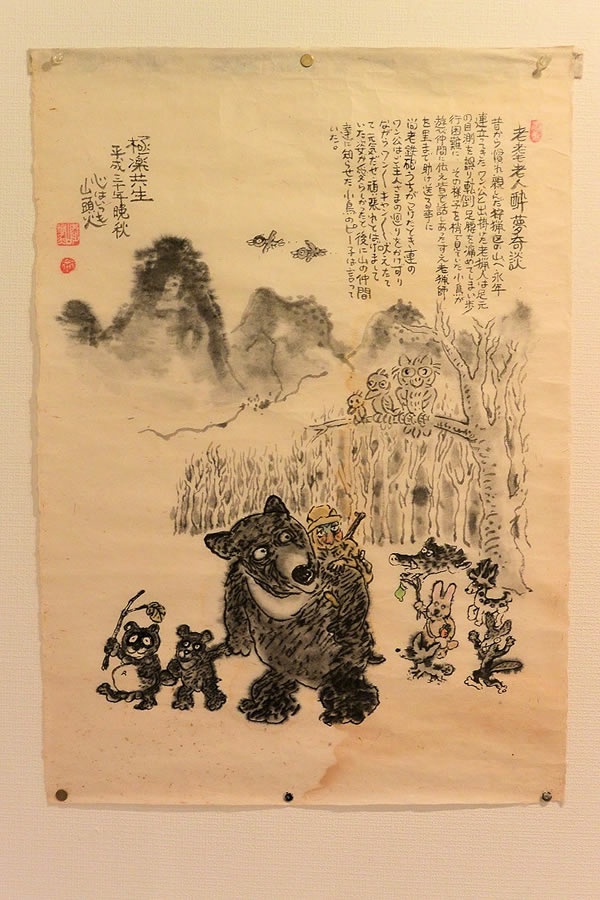 老耄老人酔夢奇談
昔から慣れ親しんだ狩猟邑の山へ永年
連立ってきたワン公と出掛けた老猟人は足元
の目測を誤り転倒 足腰を痛めてしまい歩
行困難に その様子を梢で見ていた小鳥が
森の仲間に伝え皆で話しあったすえ老猟師
を里まで助け送る事に
尚老鉄砲うちがつけたとき 連の
ワン公はご主人さまの廻りをかけずり
ながらワンワンキャンキャン吠えたて
て元気だせ頑張れとはげまして
いた姿が愛らしかったと後に山の仲間
達に知らせた小鳥のピー子は言って
いた。
極楽共生
平成三十年晩秋
心はいつも
山頭火